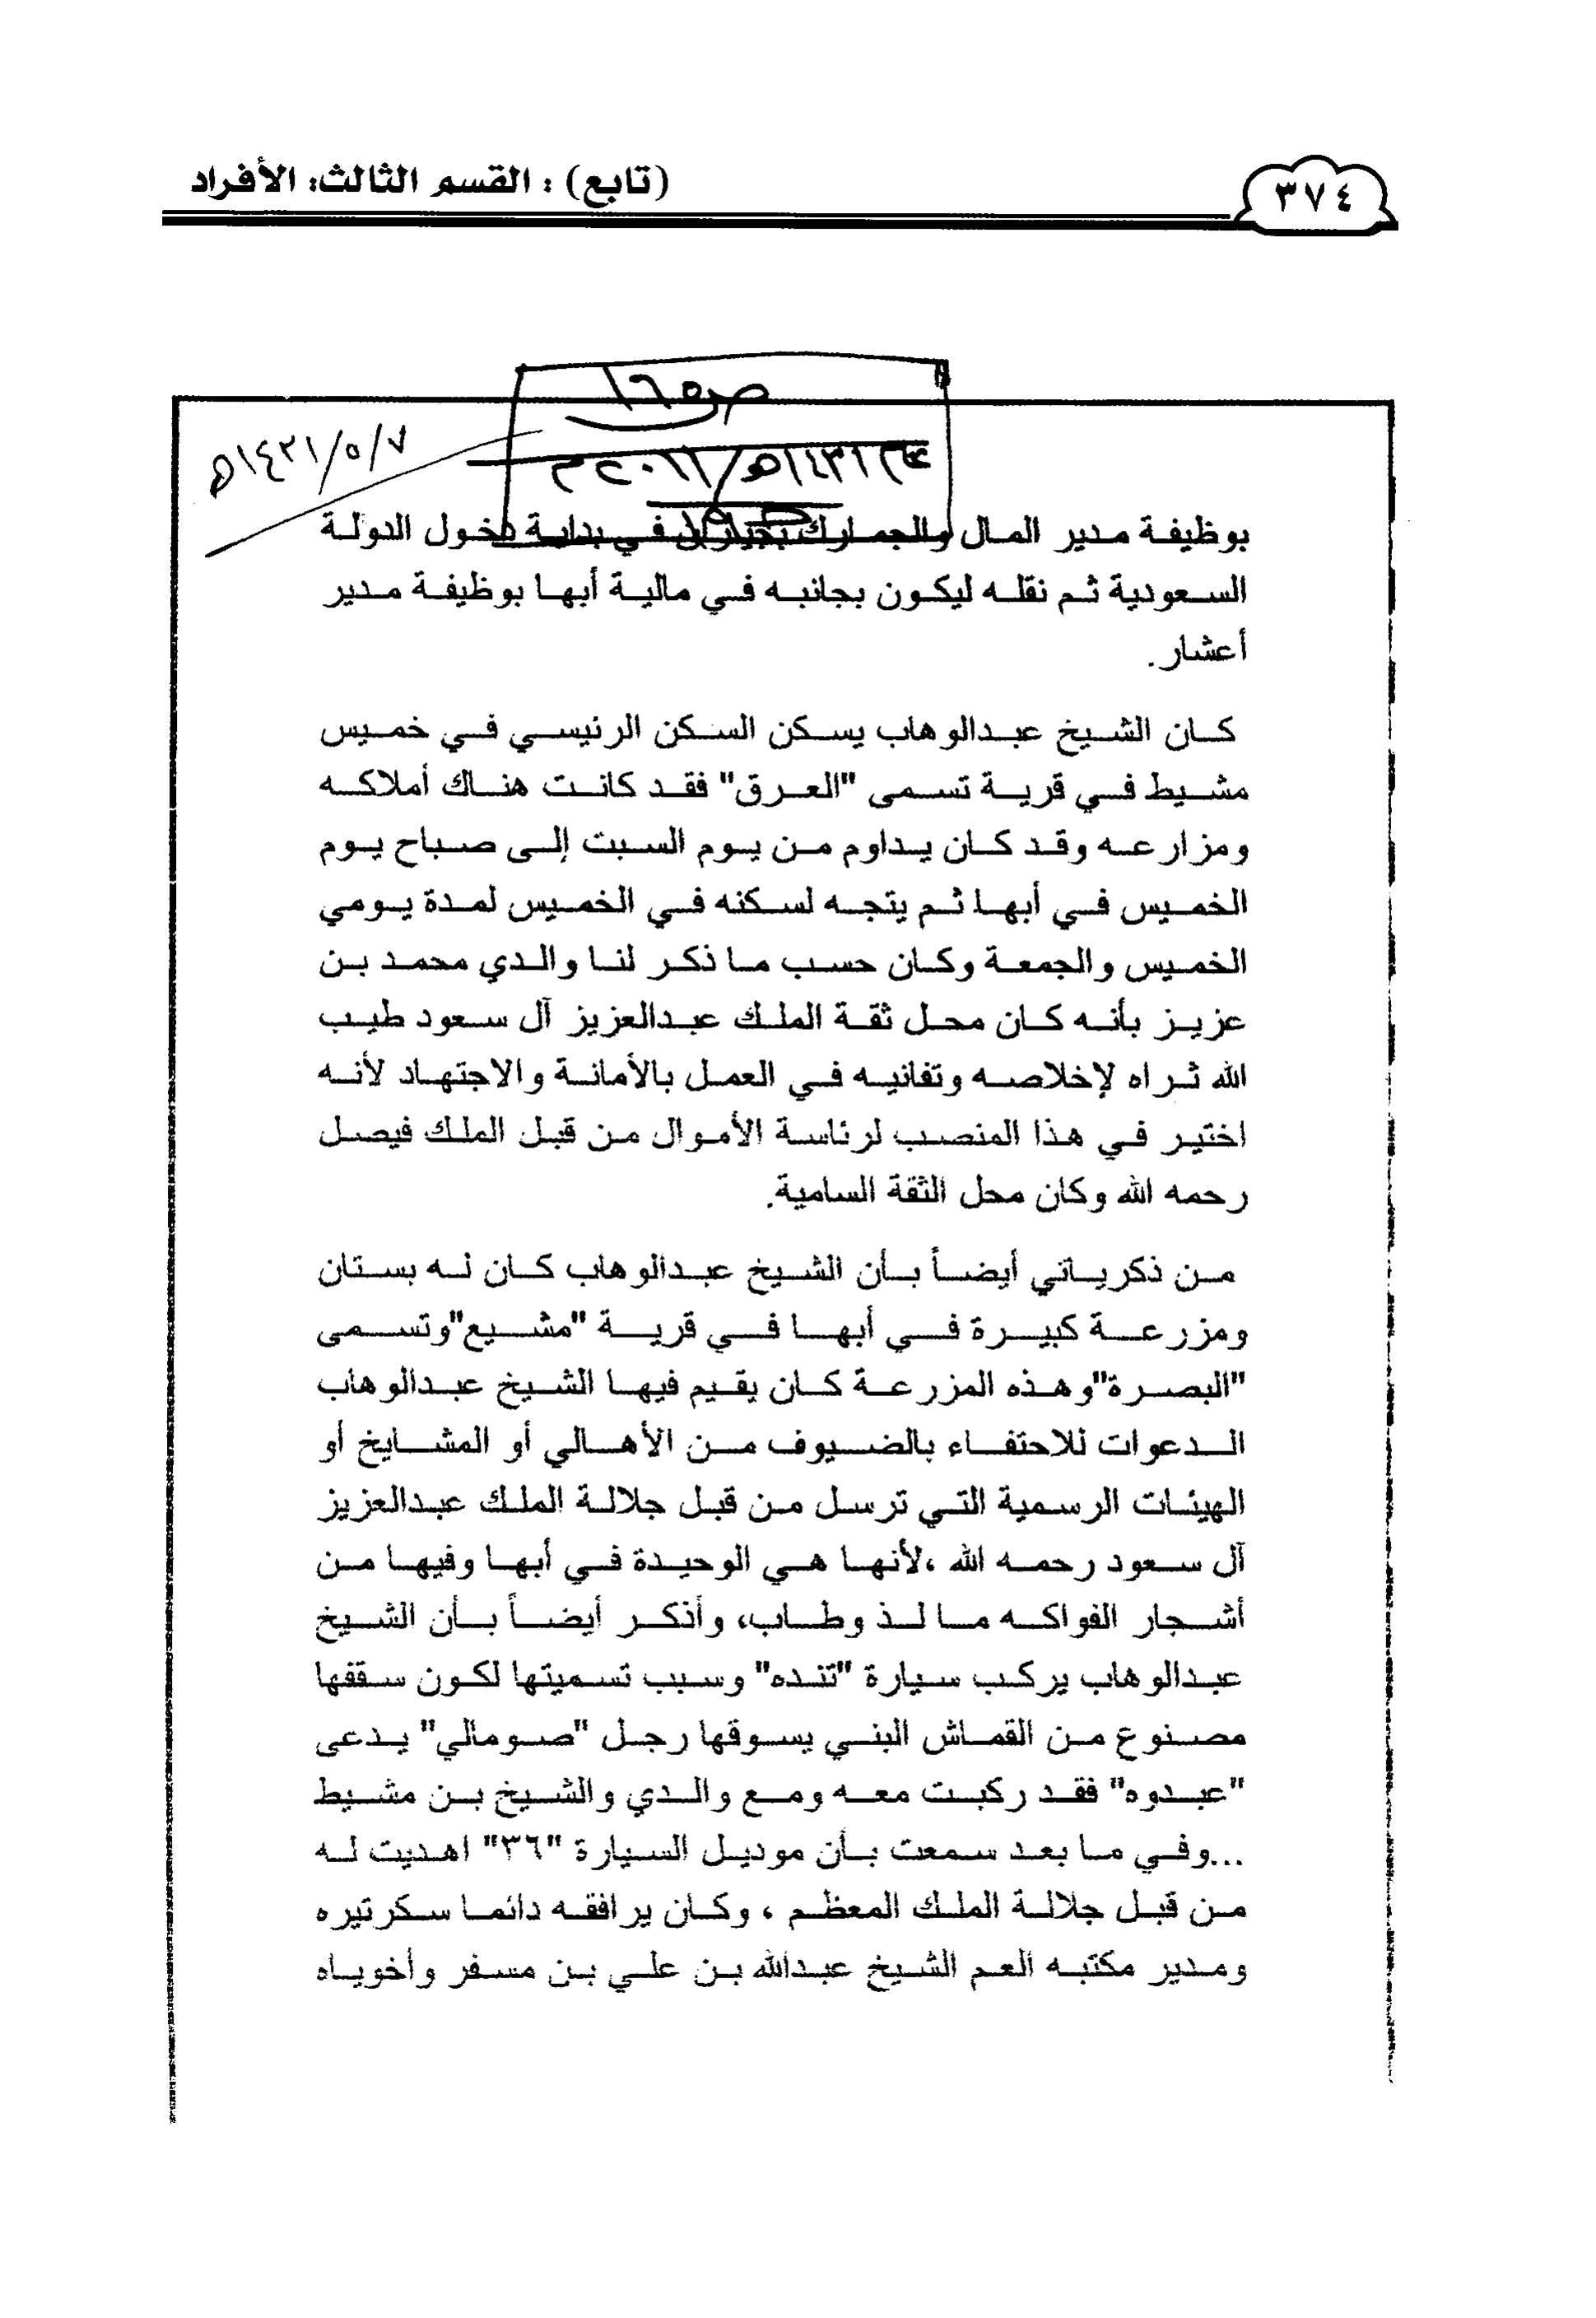 ٣٧٤
(تابع) : القسم الثالث: الأفراد
١٤٣١/٥/٧هـ
بوظيفة مدير المال والجمارك بجيزان في بداية دخول الدولة
السعودية ثم نقله ليكون بجانبه في مالية أبها بوظيفة مدير
أعشار.
كان الشيخ عبدالوهاب يسكن السكن الرئيسي في خميس
مشيط في قرية تسمى "العرق" فقد كانت هناك أملاكه
ومزارعه وقد كان يداوم من يوم السبت إلى صباح يوم
الخميس في أبها ثم يتجه لسكنه في الخميس لمدة يومي
الخميس والجمعة وكان حسب ما ذكر لنا والدي محمد بن
عزيز بأنه كان محل ثقة الملك عبدالعزيز آل سعود طيب
الله ثراه لإخلاصه وتفانيه في العمل بالأمانة والاجتهاد لأنه
اختير في هذا المنصب لرئاسة الأموال من قبل الملك فيصل
رحمه الله وكان محل الثقة السامية.
من ذكرياتي أيضاً بأن الشيخ عبدالوهاب كان له بستان
ومزرعة كبيرة في أبها في قرية "مشيع"وتسمى
"البصرة"وهذه المزرعة كان يقيم فيها الشيخ عبدالوهاب
الدعوات للاحتفاء بالضيوف من الأهالي أو المشايخ أو
الهيئات الرسمية التي ترسل من قبل جلالة الملك عبدالعزيز
آل سعود رحمه الله ،لأنها هي الوحيدة في أبها وفيها من
أشجار الفواكه ما لذ وطاب، وأذكر أيضاً بأن الشيخ
عبدالوهاب يركب سيارة "تنده" وسبب تسميتها لكون سقفها
مصنوع من القماش البني يسوقها رجل "صومالي" يدعى
"عبدوه" فقد ركبت معه ومع والدي والشيخ بن مشيط
...وفي ما بعد سمعت بأن موديل السيارة "٣٦" اهديت له
من قبل جلالة الملك المعظم ، وكان يرافقه دائما سكرتيره
ومدير مكتبه العم الشيخ عبدالله بن علي بن مسفر وأخوياه